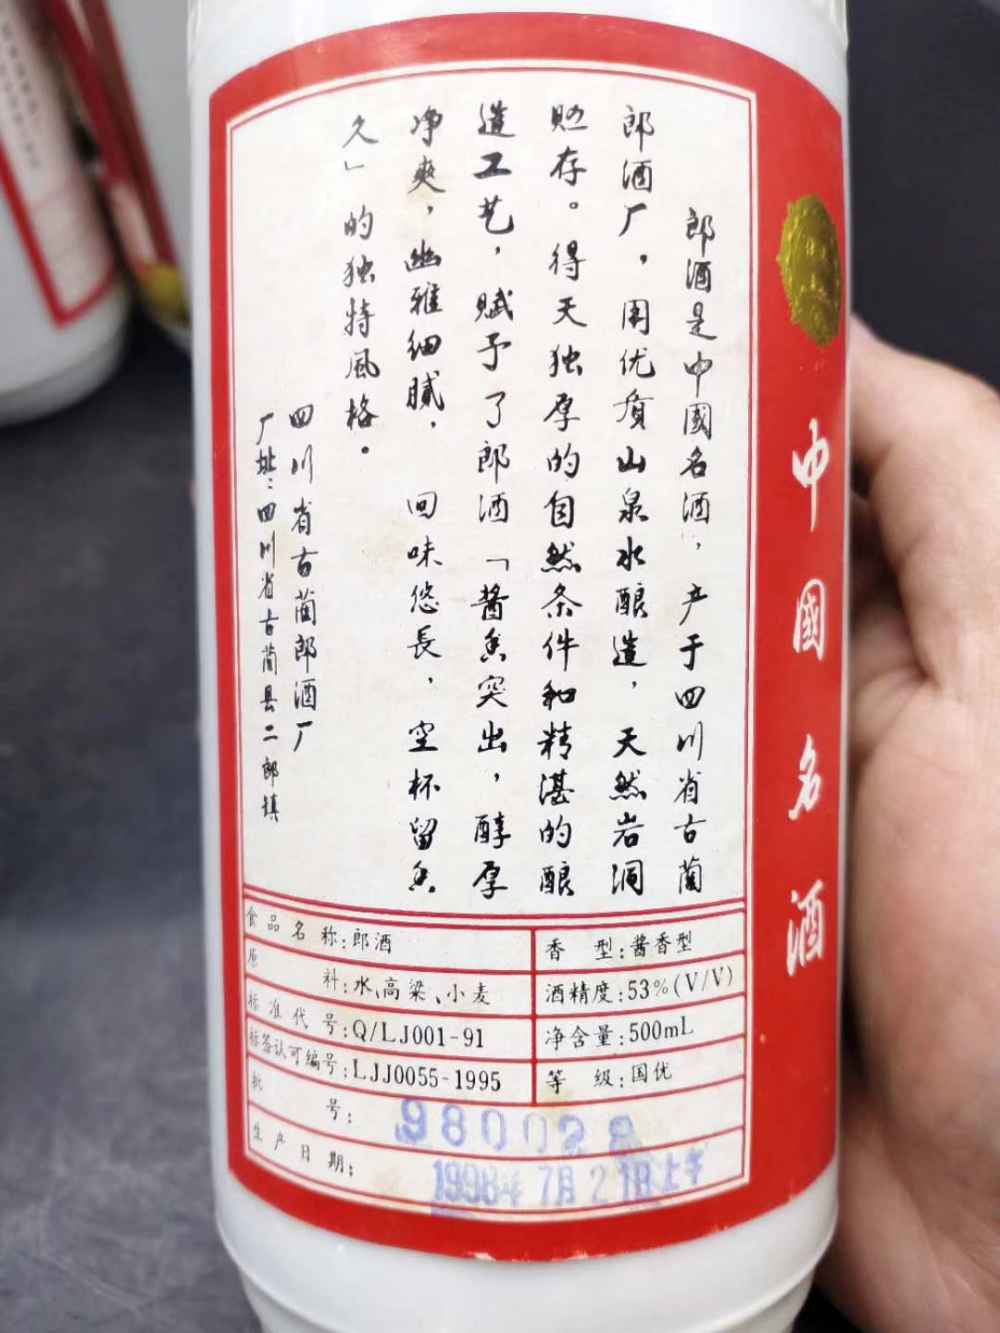 中國名酒
郎酒是中國名酒，产于四川省古蔺
郎酒厂，用优质山泉水酿造，天然岩洞
贮存。得天独厚的自然条件和精湛的酿
造工艺，赋予了郎酒「酱香突出，醇厚
净爽，幽雅细腻，回味悠長，空杯留香
久」的独特風格。
四川省古蔺郎酒厂
厂址：四川省古蔺县二郎镇
食品名称：郎酒
香型：酱香型
原料：水、高粱、小麦
酒精度：53%(V/V)
标准代号：Q/LJ001-91
净含量：500mL
标签认可编号：LJJ0055-1995
等级：国优
批号：980028
生产日期：1998年7月21日上午